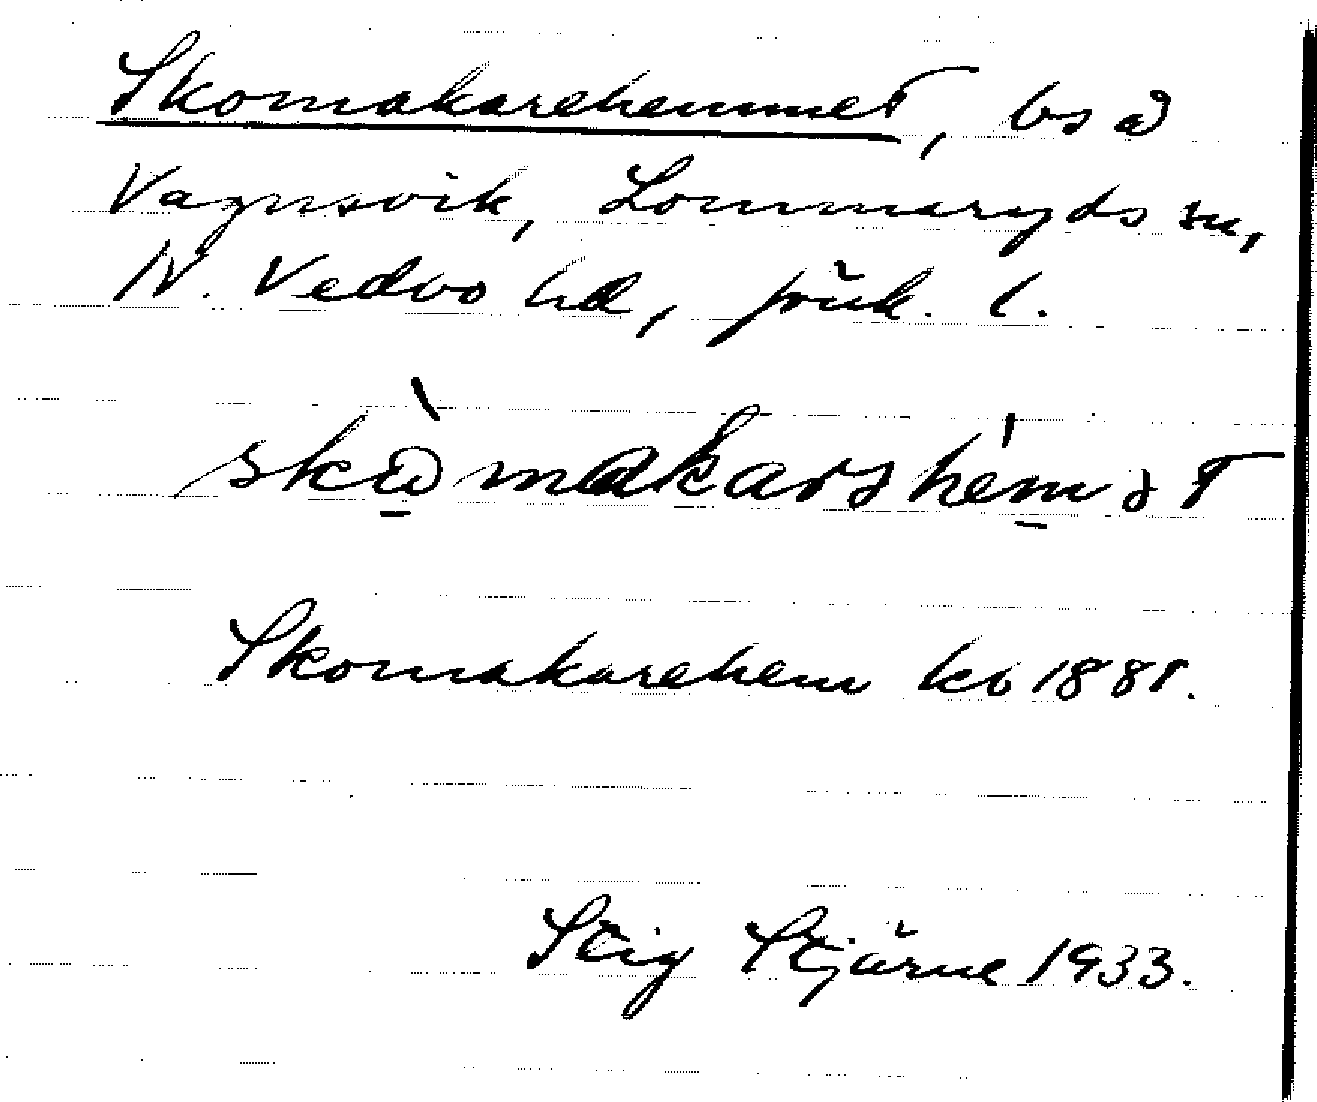 Skomakarehemmet, bs å
Vagnsvik, Lommaryds sn,
N. Vedbo hd, Jönk. l.
skòmakarəhémət
Skomakarehem kb 1881.
Stig Stjärne 1933.